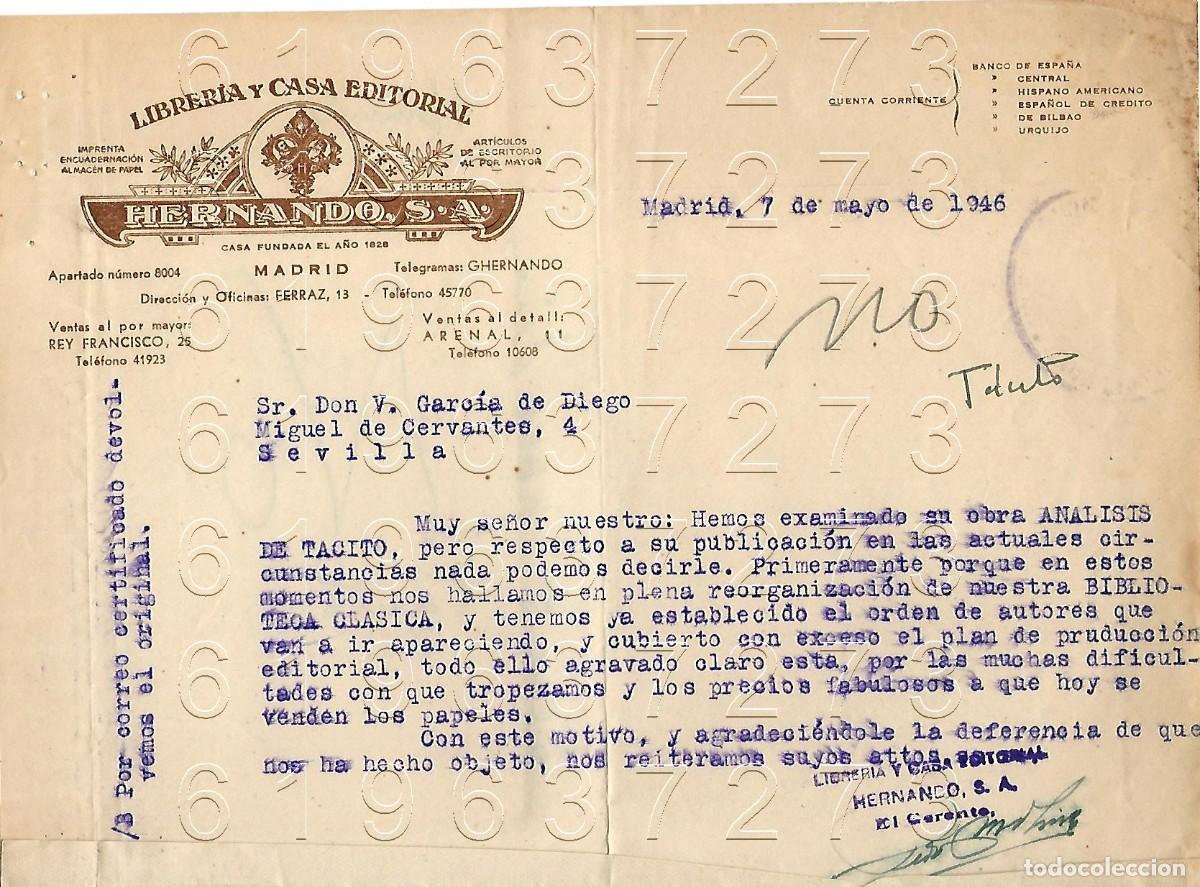 LIBRERÍA Y CASA EDITORIAL
IMPRENTA
ENCUADERNACIÓN
ALMACÉN DE PAPEL
ARTÍCULOS
DE ESCRITORIO
AL POR MAYOR
HERNANDO, S.A.
CASA FUNDADA EL AÑO 1828
Apartado número 8004
MADRID
Telegramas: GHERNANDO
Dirección y Oficinas: FERRAZ, 13 - Teléfono 45770
Ventas al por mayor:
REY FRANCISCO, 25
Teléfono 41923
Ventas al detall:
ARENAL, 11
Teléfono 10608
CUENTA CORRIENTE
BANCO DE ESPAÑA
» CENTRAL
» HISPANO AMERICANO
» ESPAÑOL DE CREDITO
» DE BILBAO
» URQUIJO
Madrid, 7 de mayo de 1946
NO
Tácito
Sr. Don V. García de Diego
Miguel de Cervantes, 4
Sevilla
Muy señor nuestro: Hemos examinado su obra ANALISIS
DE TACITO, pero respecto a su publicación en las actuales cir-
cunstancias nada podemos decirle. Primeramente porque en estos
momentos nos hallamos en plena reorganización de nuestra BIBLIO-
TECA CLASICA, y tenemos ya establecido el orden de autores que
van a ir apareciendo, y cubierto con exceso el plan de pruducción
editorial, todo ello agravado claro está, por las muchas dificul-
tades con que tropezamos y los precios fabulosos a que hoy se
venden los papeles.
Con este motivo, y agradeciéndole la deferencia de que
nos ha hecho objeto, nos reiteramos suyos attos
LIBRERIA Y CASA EDITORIAL
HERNANDO, S. A.
El Gerente,
/B Por correo certificado devol-
vemos el original.
619637273
619637273
619637273
619637273
619637273
619637273
619637273
todocoleccion